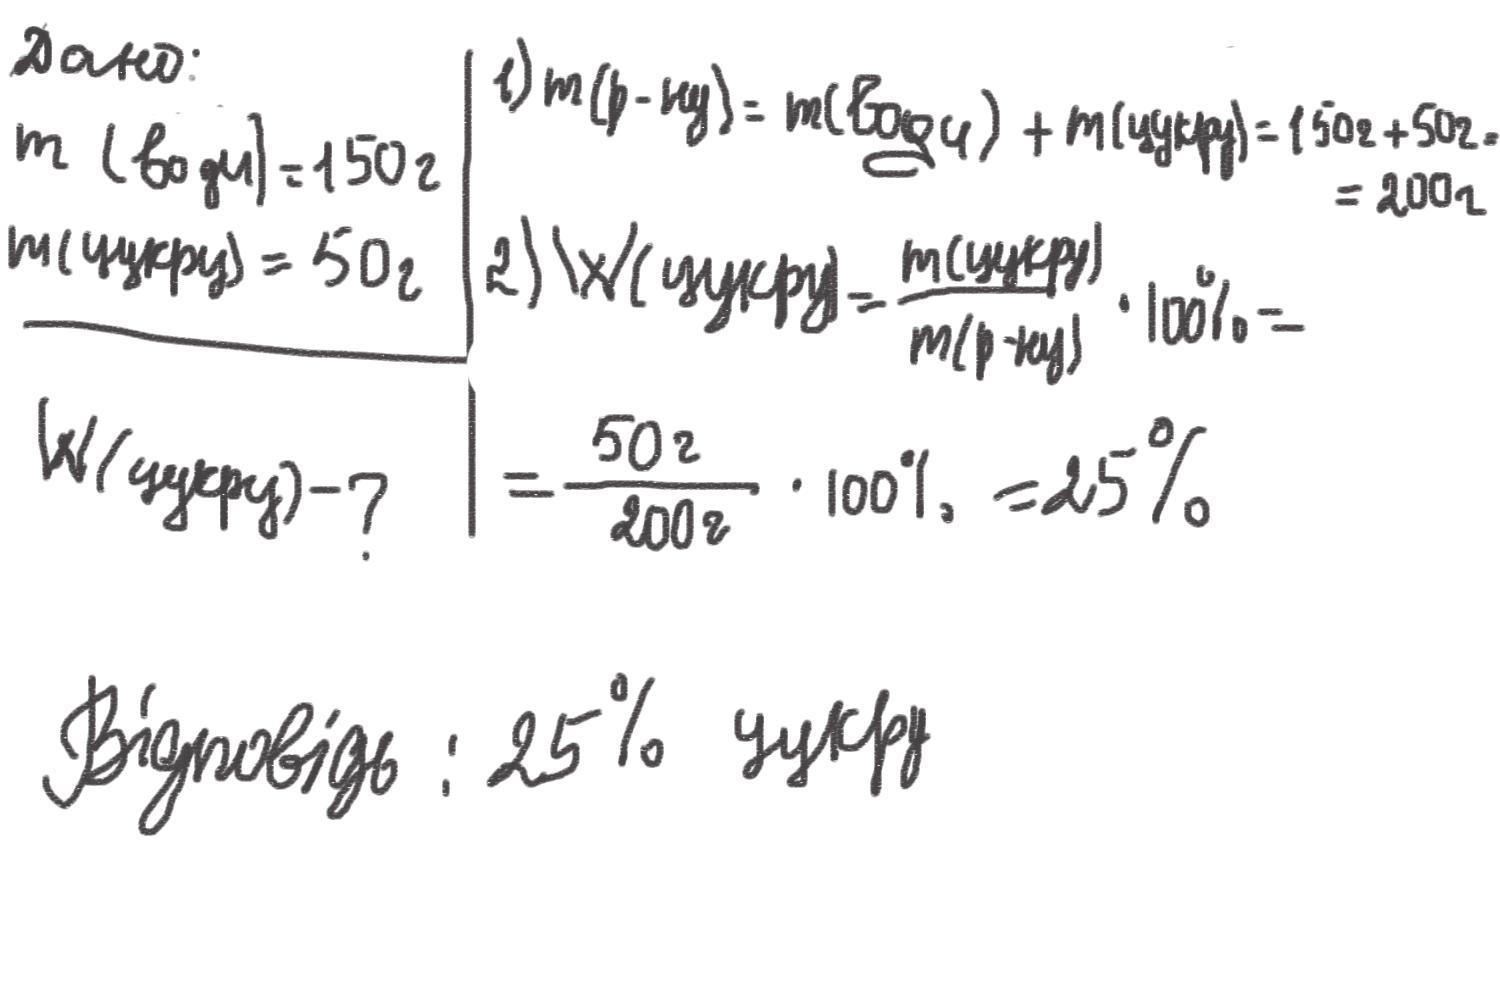 Дано:
m (води) = 150г
m(цукру) = 50г
W(цукру) - ?
1) m(р-ну) = m(води) + m(цукру) = 150г + 50г =
= 200г
2) W(цукру) = m(цукру) / m(р-ну) · 100% =
= 50г / 200г · 100% = 25%
Відповідь : 25% цукру